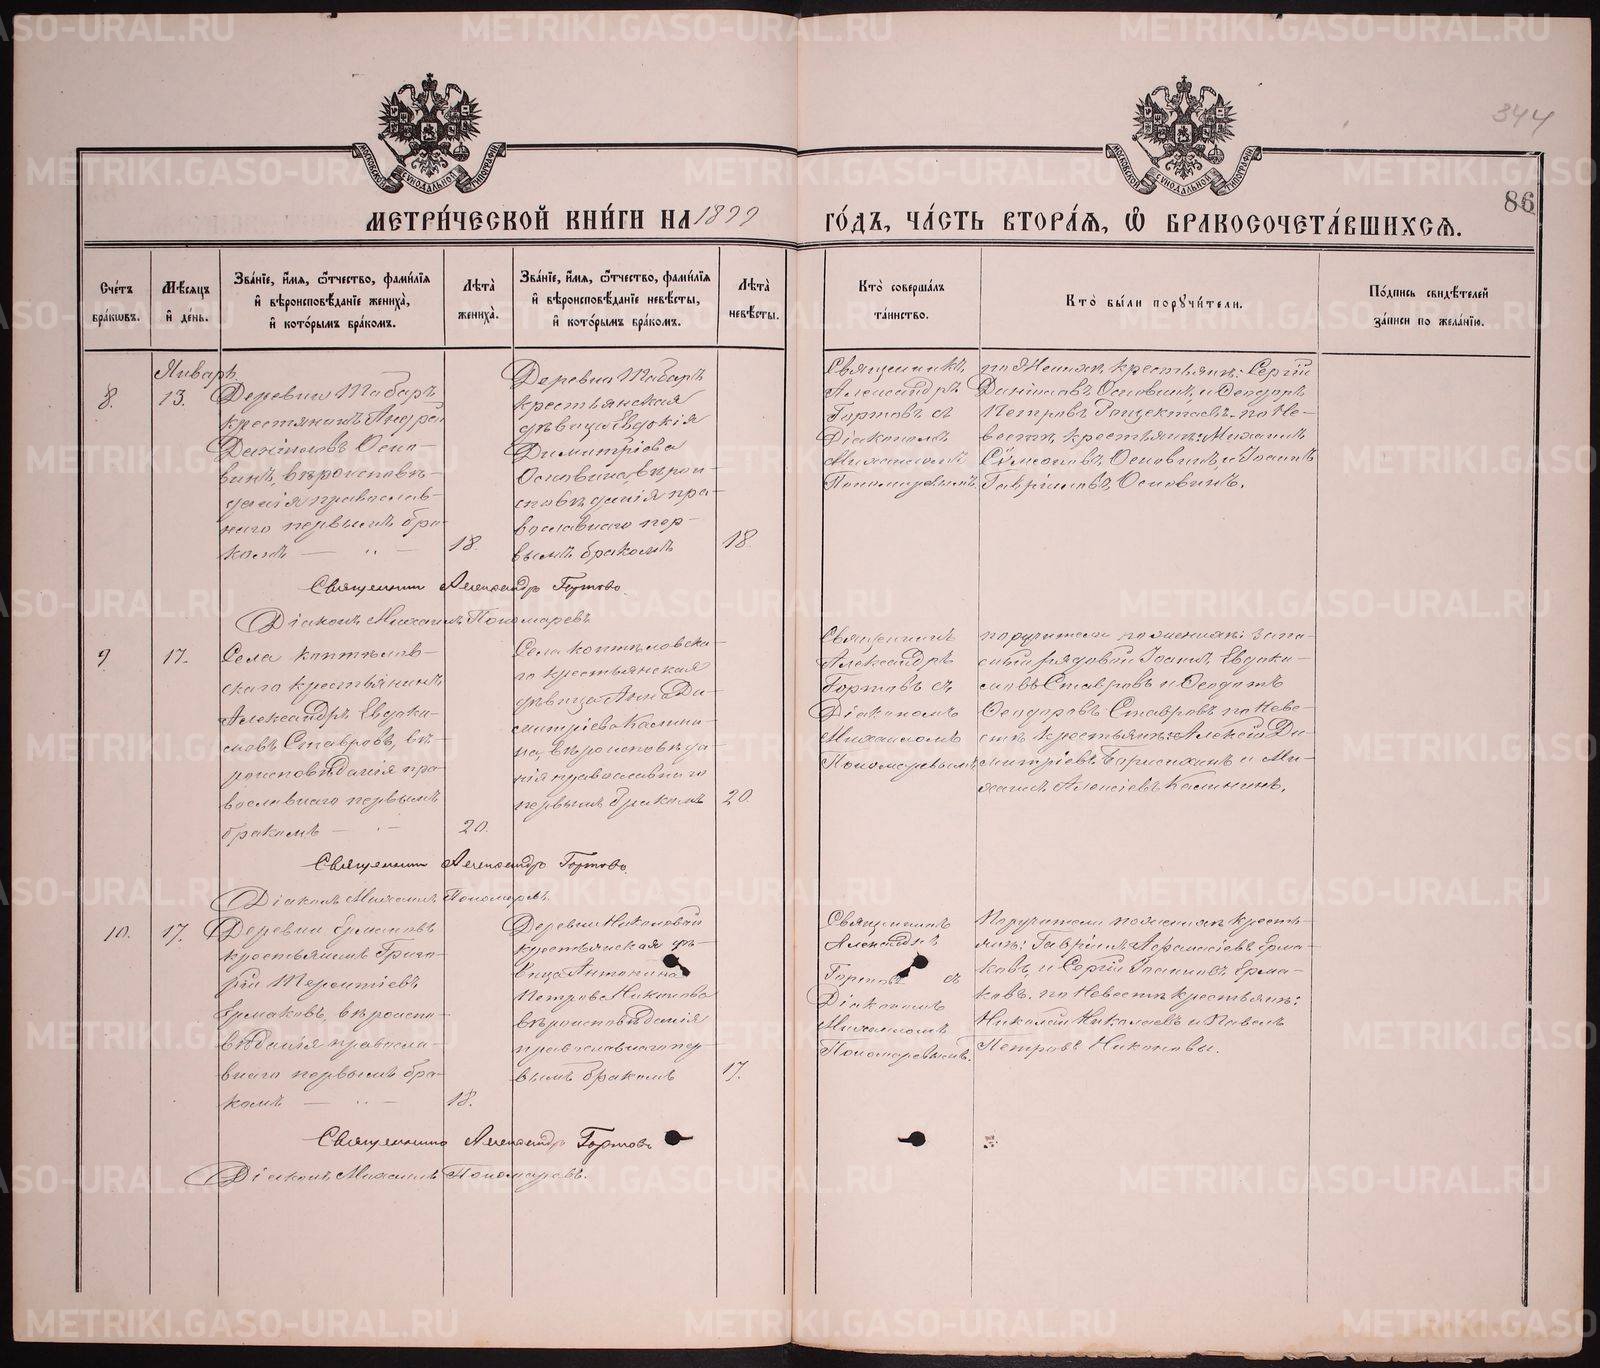 344
86
МОСКОВСКОЙ СУНОДАЛЬНОЙ ТИПОГРАФІИ
МОСКОВСКОЙ СУНОДАЛЬНОЙ ТИПОГРАФІИ
МЕТРИ́ЧЕСКОЙ КНИ́ГИ НА 1899 ГО́ДЪ, ЧА́СТЬ ВТОРА́Я, Ѽ БРАКОСОЧЕТА́ВШИХСЯ.
Сче́тъ
бра́кѡвъ.
Мѣ́сяцъ
и҆ де́нь.
Зва́нїе, и҆́мя, ѻ҆́тчество, фами́лїя
и҆ вѣроисповѣ́данїе жениха̀,
и҆ кото́рымъ бра́комъ.
Лѣ́та
жениха̀.
Зва́нїе, и҆́мя, ѻ҆́тчество, фами́лїя
и҆ вѣроисповѣ́данїе невѣ́сты,
и҆ кото́рымъ бра́комъ.
Лѣ́та
невѣ́сты.
Кто̀ соверша́лъ
та́инство.
Кто̀ бы́ли порꙋчи́тели.
По́дпись свидѣ́телей
за́писи по жела́нїю.
Январь
8.
13.
Деревни Таборъ
крестьянинъ Андрей
Даніиловъ Осно-
винъ, вѣроисповѣ-
данія православ-
наго первымъ бра-
комъ
18.
Деревни Таборъ
крестьянская
дѣвица Евдокія
Димитріева
Основина, вѣрои-
сповѣданія пра-
вославнаго пер-
вымъ бракомъ
18.
Священникъ
Александръ
Гортовъ съ
Діакономъ
Михаиломъ
Пономаревымъ.
по Женихѣ крестьяне: Сергій
Даніиловъ Основинъ, и Ѳеодоръ
Петровъ по Не-
вѣстѣ, крестьяне: Михаилъ
Сѷмеоновъ Основинъ, и Іоаннъ
Гавріиловъ, Основинъ.
Священникъ Александръ Гортовъ.
Діаконъ Михаилъ Пономаревъ
9
17.
Села Коптѣлов-
скаго крестьянинъ
Александръ Евдоки-
мовъ Ставровъ, вѣ-
роисповѣданія пра-
вославнаго первымъ
бракомъ
20.
Села Коптѣловска-
го крестьянская
дѣвица Анна Ди-
митріева Калини-
на, вѣроисповѣда-
нія православнаго
первымъ бракомъ
20.
Священникъ
Александръ
Гортовъ съ
Діакономъ
Михаиломъ
Пономаревымъ
поручители по женихѣ: запа-
сный рядовой Іоаннъ Евдоки-
мовъ Ставровъ и Ѳеодотъ
Ѳеодоровъ Ставровъ по Неве-
стѣ крестьяне: Алексій Ди-
митріевъ и Ми-
хаилъ Алексіевъ Калининъ.
Священникъ Александръ Гортовъ.
Діаконъ Михаилъ Пономаревъ
10.
17.
Деревни Ермаковъ
крестьянинъ Григо-
рій Терентіевъ
Ермаковъ, вѣроиспо-
вѣданія правосла-
внаго первымъ бра-
комъ
18.
Деревни Никоновой
крестьянская дѣ-
вица Антонина
Петрова Никонова
вѣроисповѣданія
православнаго пер-
вымъ бракомъ
17.
Священникъ
Александръ
Гортовъ съ
Діакономъ
Михаиломъ
Пономаревымъ.
Поручители по женихѣ кресть-
яне: Гавріилъ Аѳанасіевъ Ерма-
ковъ, и Сергій Іоанновъ Ерма-
ковъ. по Невестѣ крестьяне:
Николай Николаевъ и Павелъ
Петровъ Никоновы.
Священникъ Александръ Гортовъ
Діаконъ Михаилъ Пономаревъ.
METRIKI.GASO-URAL.RU